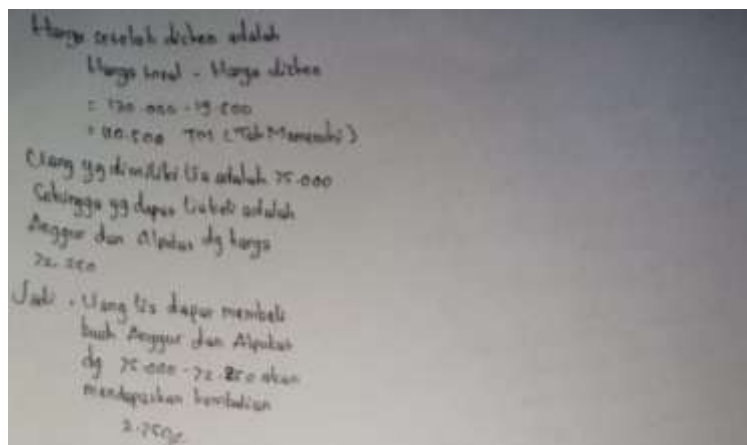 Harga setelah diskon adalah
Harga awal - Harga diskon
= 130.000 - 19.500
= 110.500 TM (Tak Memenuhi)
Uang yg dimiliki Lia adalah 75.000
Sehingga yg dapat Lia beli adalah
Anggur dan Alpukat dg harga
72.250
Jadi, Uang Lia dapat membeli
buah Anggur dan Alpukat
dg 75.000 - 72.250 akan
mendapatkan kembalian
2.750